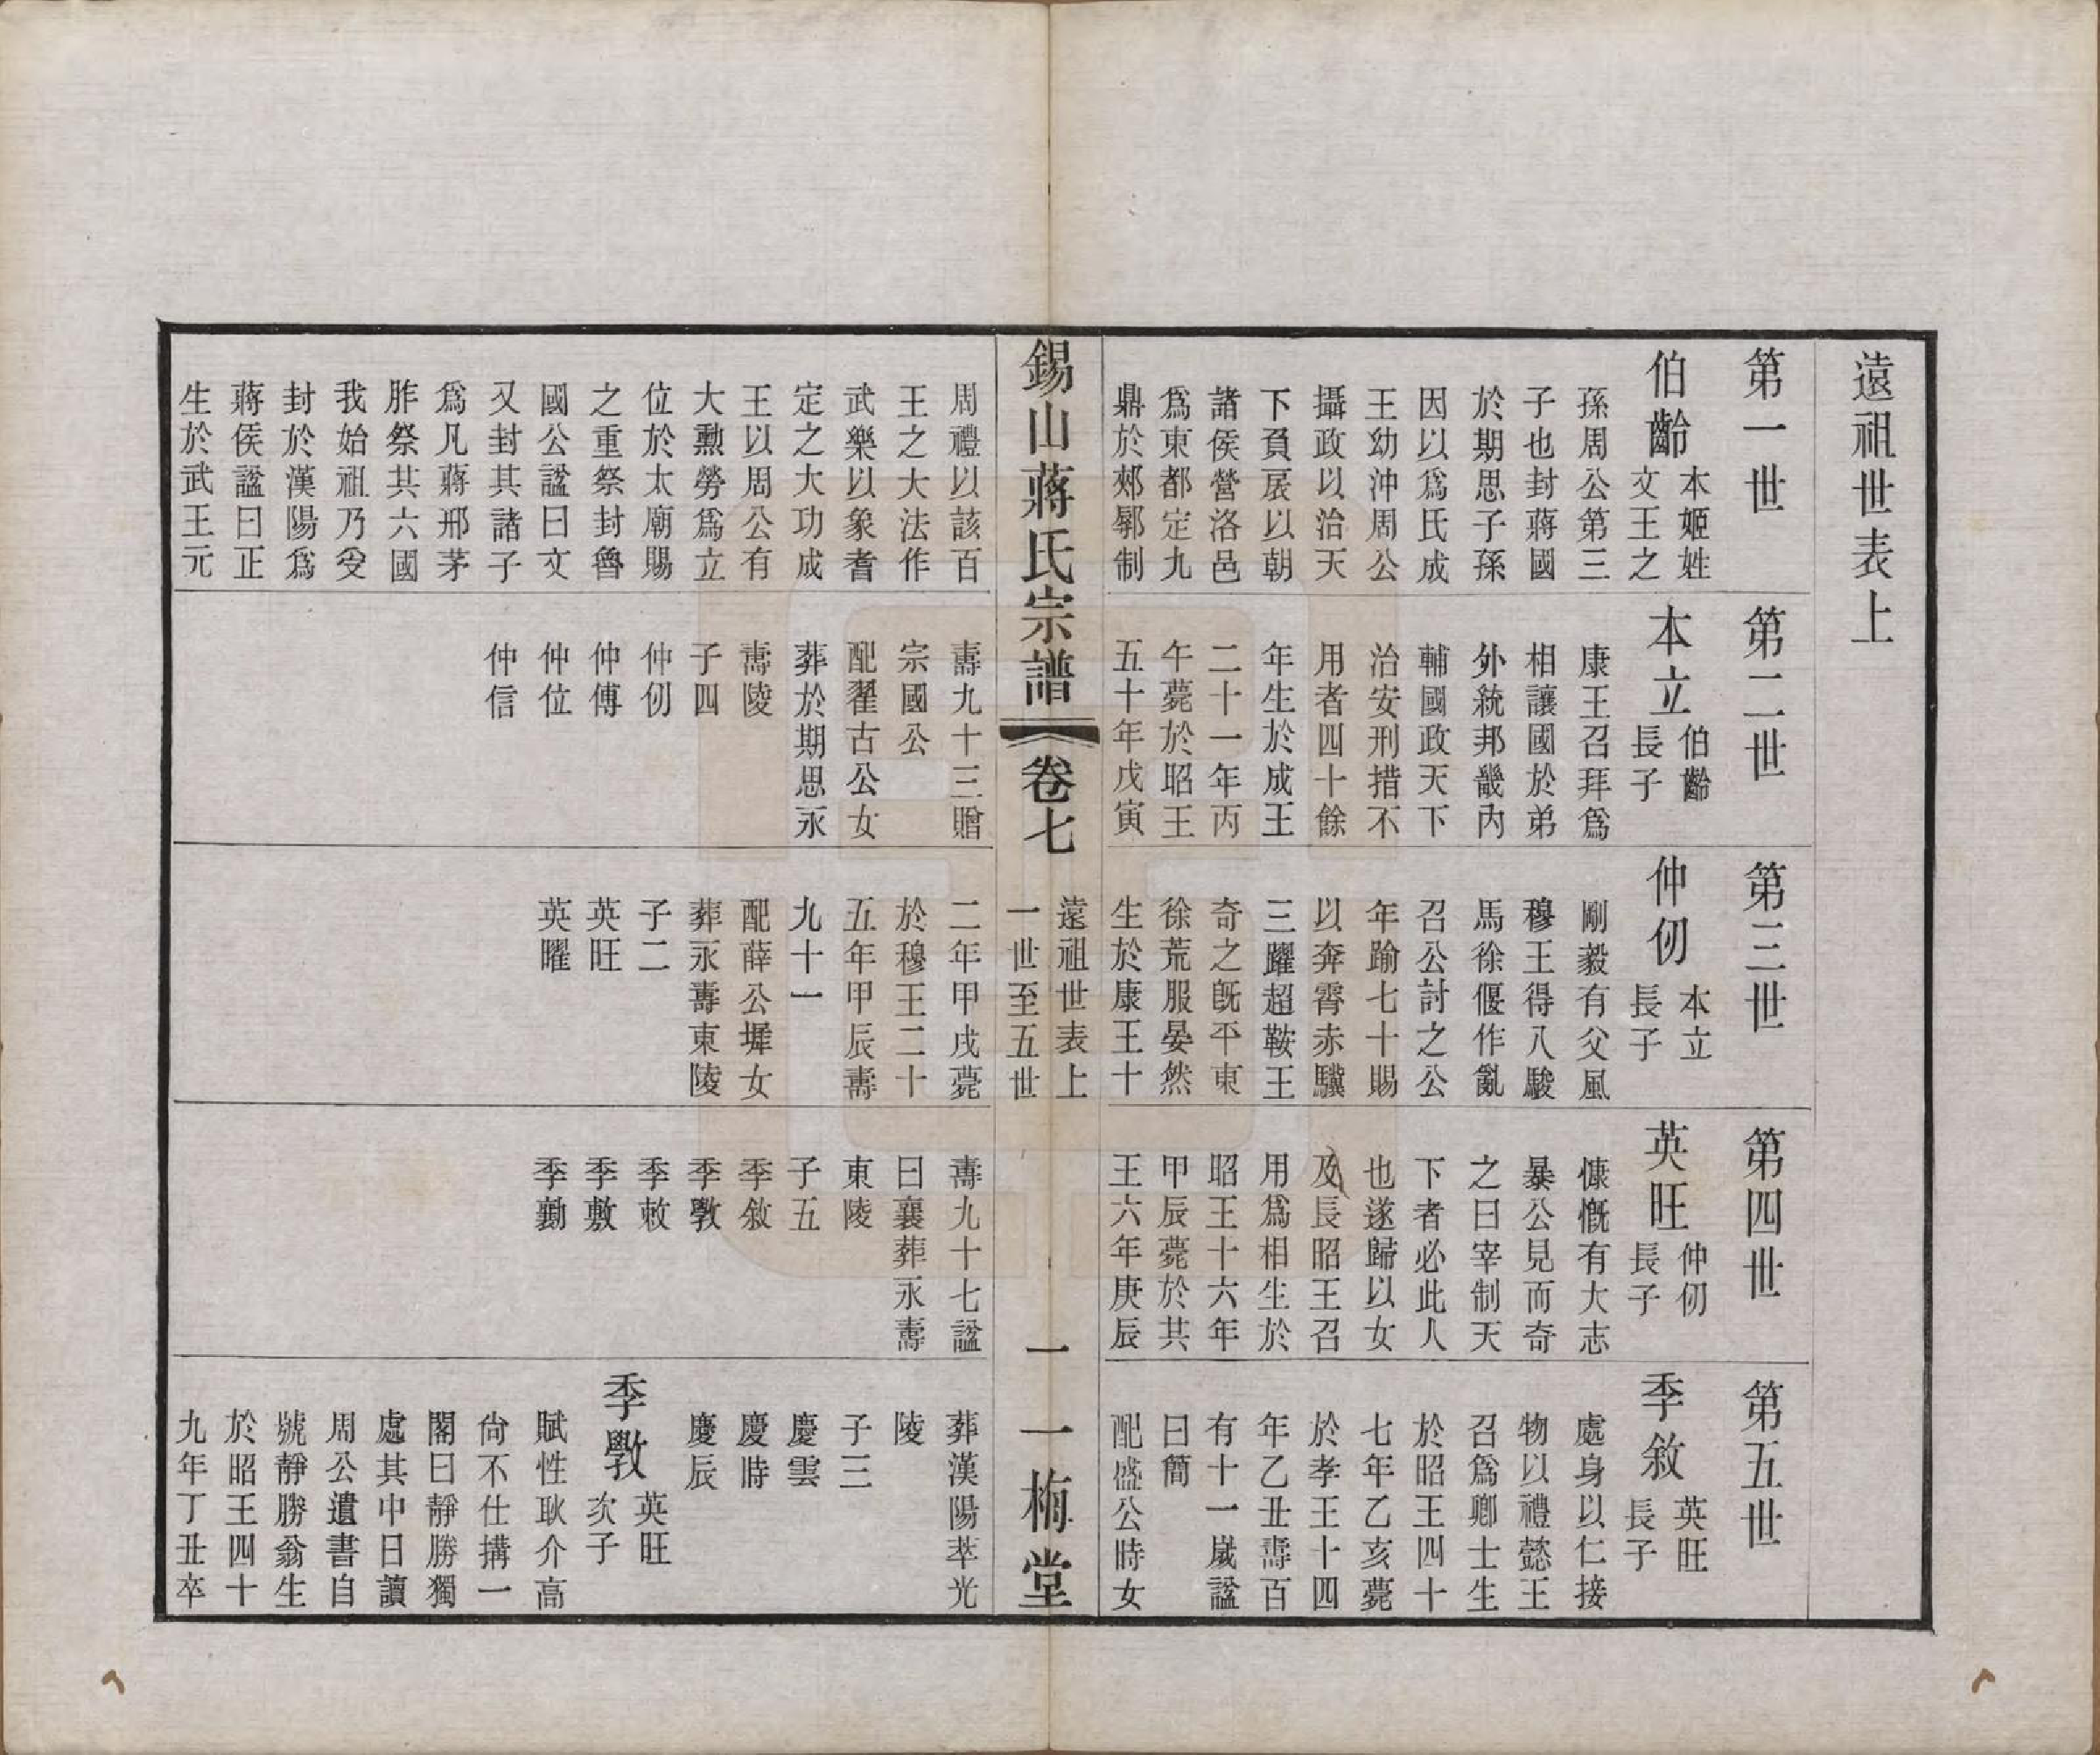 遠祖世表上
第一世
伯齡
本姬姓
文王之
孫周公第三
子也封蔣國
於期思子孫
因以爲氏成
王幼沖周公
攝政以治天
下負扆以朝
諸侯營洛邑
爲東都定九
鼎於郟鄏制
周禮以該百
王之大法作
武樂以象耆
定之大功成
王以周公有
大勲勞爲立
位於太廟賜
之重祭封魯
國公諡曰文
又封其諸子
爲凡蔣邢茅
胙祭共六國
我始祖乃受
封於漢陽爲
蔣侯諡曰正
生於武王元
第二世
本立
伯齡
長子
康王召拜爲
相讓國於弟
外統邦畿內
輔國政天下
治安刑措不
用者四十餘
年生於成王
二十一年丙
午薨於昭王
五十年戊寅
壽九十三贈
宗國公
配翟古公女
葬於期思永
壽陵
子四
仲仞
仲傅
仲位
仲信
第三世
仲仞
本立
長子
剛毅有父風
穆王得八駿
馬徐偃作亂
召公討之公
年踰七十賜
以奔霄赤驥
三躍超鞍王
奇之旣平東
徐荒服晏然
生於康王十
二年甲戌薨
於穆王二十
五年甲辰壽
九十一
配薛公墀女
葬永壽東陵
子二
英旺
英曜
第四世
英旺
仲仞
長子
慷慨有大志
暴公見而奇
之曰宰制天
下者必此人
也遂歸以女
及長昭王召
用爲相生於
昭王十六年
甲辰薨於共
王六年庚辰
壽九十七諡
曰襄葬永壽
東陵
子五
季敘
季斆
季敕
季敷
季勷
第五世
季敘
英旺
長子
處身以仁接
物以禮懿王
召爲卿士生
於昭王四十
七年乙亥薨
於孝王十四
年乙丑壽百
有十一歲諡
曰簡
配盛公時女
葬漢陽萃光
陵
子三
慶雲
慶時
慶辰
季斆
英旺
次子
賦性耿介高
尙不仕搆一
閣曰靜勝獨
處其中日讀
周公遺書自
號靜勝翁生
於昭王四十
九年丁丑卒
錫山蔣氏宗譜
卷七
遠祖世表上
一世至五世
一
一梅堂